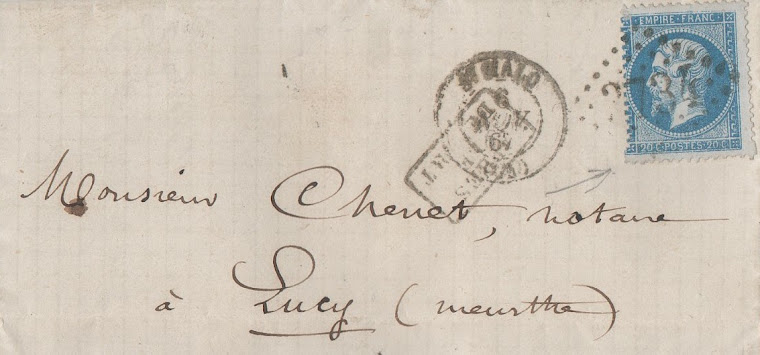 EMPIRE FRANC
20 C POSTES 20 C
ST MALO
Monsieur Chenet, notaire
à Lucy (meurthe)